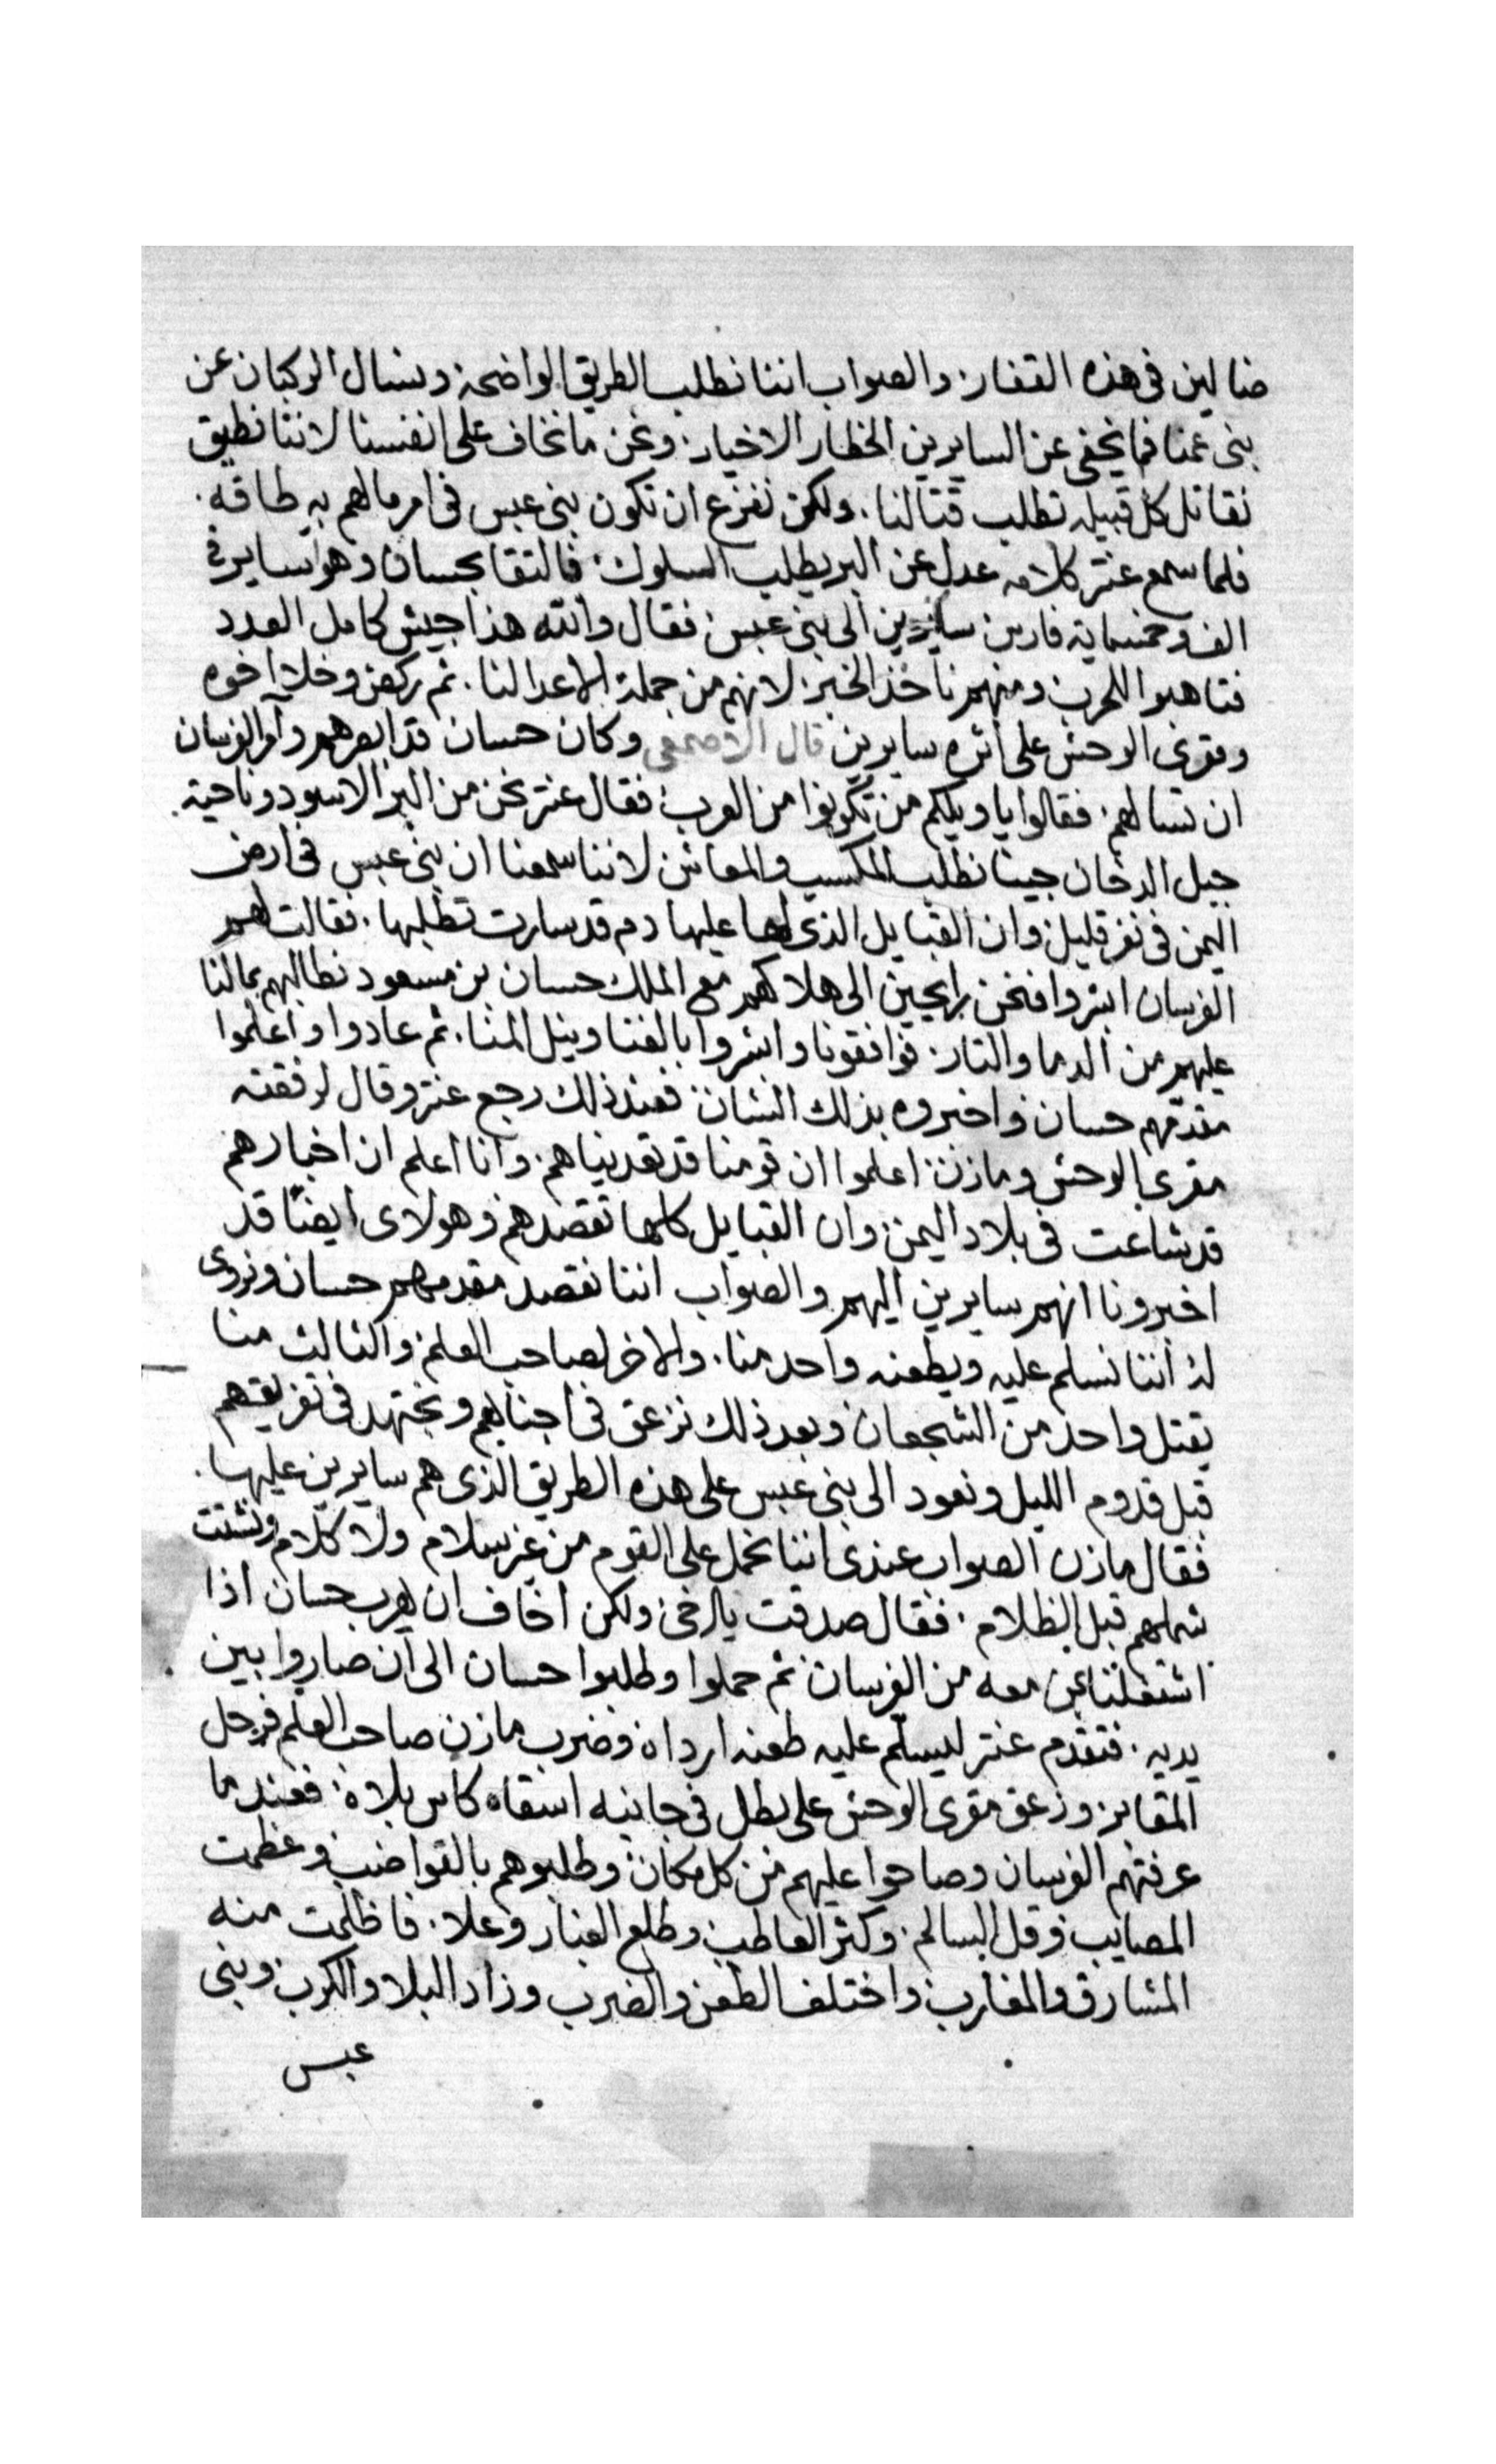 ضالين فى هذه القفار. والصواب اننا نطلب الطريق الواضحة ونسال الركبان عن
بنى عمنا فما يخفى عن السايرين الخطار الاخيار. ونحن ما نخاف على انفسنا لاننا نطيق
نقاتل كل قبيله تطلب قتالنا. ولكن نفزع ان تكون بنى عبس فى امر ما لهم به طاقه.
فلما سمع عنتر كلامه عدل عن البر يطلب السلوك. فالتقا بحسان وهو ساير فى
الف وخمسماية فارس سايرين الى بنى عبس. فقال والله هذا جيش كامل العدد
فتاهبوا للحرب ومنهم ناخذ الخبر. لانهم من جملة الاعدا لنا. ثم ركض وخلا اخوه
ومقرى الوحش على اثره سايرين قال الاصمعى وكان حسان قد ابصرهم وآمر الفرسان
ان تسالهم. فقالوا يا ويلكم من تكونوا من العرب. فقال عنتر نحن من البر الاسود وناحية.
جبل الدخان جينا نطلب المكسب والمعاش لاننا سمعنا ان بنى عبس فى ارض
اليمن فى نفر قليل. وان القبايل الذى لها عليها دم قد سارت تطلبها. فقالت لهم
الفرسان ابشروا فنحن رايحين الى هلاكهم مع الملك حسان بن مسعود نطالبهم بمالنا
عليهم من الدما والتار. فوافقونا وابشروا بالغنا ونيل المنا. ثم عادوا واعلموا
مقدمهم حسان واخبروه بذلك الشان. فعند ذلك رجع عنتر وقال لرفقته
مقرى الوحش ومازن. اعلموا ان قومنا قد تعديناهم. وانا اعلم ان اخبارهم
قد شاعت فى بلاد اليمن. وان القبايل كلها تقصدهم وهولاى ايضًا قد
اخبرونا انهم سايرين اليهم والصواب اننا نقصد مقدمهم حسان ونروى
له اننا نسلم عليه ويطعنه واحد منا. والاخر لصاحب العلم. والثالث منا
يقتل واحد من الشجعان وبعد ذلك نزعق فى اجنابهم ونجتهد فى تفريقهم
قبل قدوم الليل ونعود الى بنى عبس على هذه الطريق الذى هم سايرين عليها.
فقال مازن الصواب عندى اننا نحمل على القوم من غير سلام ولا كلام ونشتت
شملهم قبل الظلام. فقال صدقت يا اخى ولكن اخاف ان يهرب حسان اذا
اشتغلنا بمن معه من الفرسان. ثم حملوا وطلبوا حسان الى ان صاروا بين
يديه. فتقدم عنتر ليسلم عليه طعنه ارداه. وضرب مازن صاحب العلم فرحل
المقابر. وزعق مقرى الوحش على بطل فى جانبه اسقاه كاس بلاه. فعندما
عرفتهم الفرسان وصاحوا عليهم من كل مكان. وطلبوهم بالقواضب. وعظمت
المصايب. وقل السالم. وكثر العاطب. وطلع الغبار وعلا. فاظلمت منه
المشارق والمغارب. واختلف الطعن والضرب وزاد البلا والكرب. وبنى
عبس